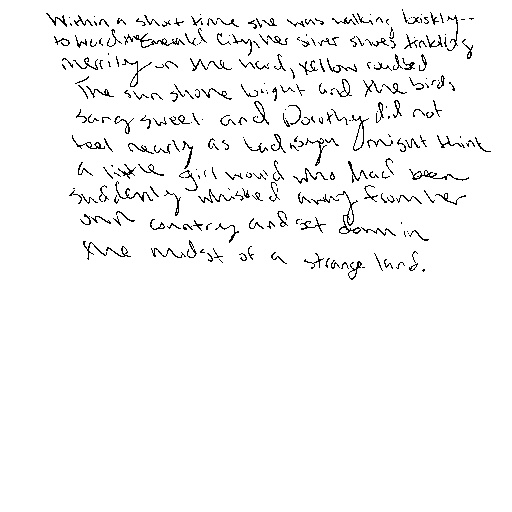 Within a short time she was walking briskly--
toward the Emerald City, her silver shoes tinkling
merrily on the hard, yellow roadbed
The sun shone bright and the birds
sang sweet and Dorothy did not
feel nearly as bad as you might think
a little girl would who had been
suddenly whisked away from her
own country and set down in
the midst of a strange land.